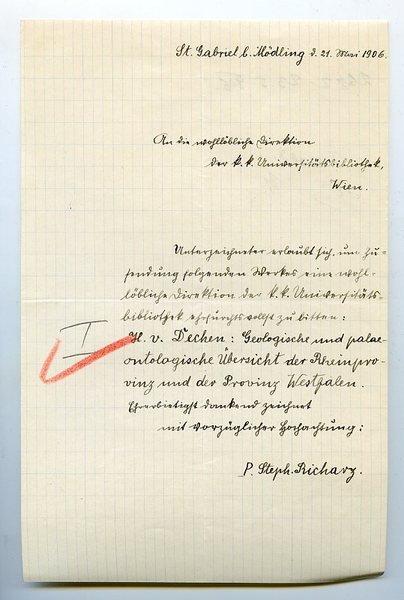 St. Gabriel b. Mödling d. 21. Mai 1906.
An die wohllöbliche Direktion
der k. k. Universitätsbibliothek,
Wien.
Unterzeichneter erlaubt sich, um Zu-
sendung folgenden Werkes eine wohl-
löbliche Direktion der k. k. Universitäts-
bibliothek ehrfurchtsvollst zu bitten:
H. v. Dechen: Geologische und palae-
ontologische Übersicht der Rheinpro-
vinz und der Provinz Westfalen.
Ehrerbietigst dankend zeichnet
mit vorzüglicher Hochachtung:
P. Steph. Richarz.
I